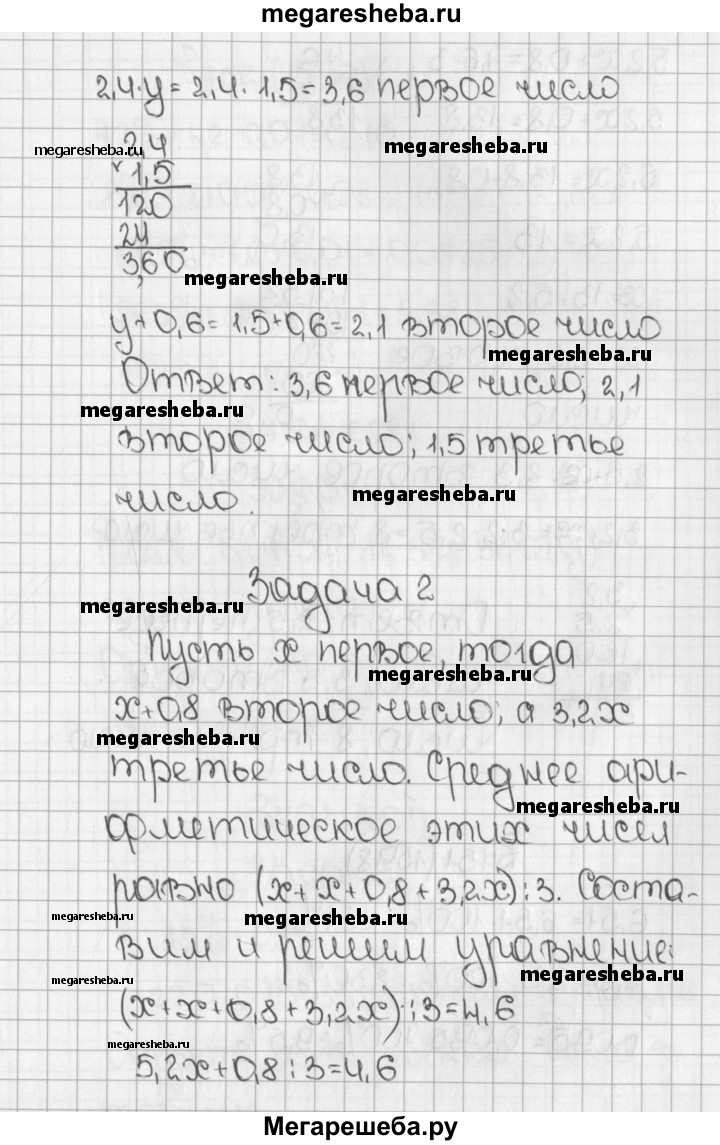 megaresheba.ru
2,4·y = 2,4·1,5=3,6 первое число
megaresheba.ru 2,4 megaresheba.ru
1,5
120
24
3,60
megaresheba.ru
y+0,6=1,5+0,6=2,1 второе число
megaresheba.ru
Ответ: 3,6 первое число; 2,1
megaresheba.ru
второе число; 1,5 третье
megaresheba.ru
число.
Задача 2
megaresheba.ru
Пусть x первое, тогда
megaresheba.ru
x+0,8 второе число; а 3,2x
megaresheba.ru
третье число. Среднее ари-
megaresheba.ru
фметическое этих чисел
равно (x+x+0,8+3,2x):3. Соста-
megaresheba.ru megaresheba.ru
вим и решим уравнение:
megaresheba.ru megaresheba.ru
(x+x+0,8+3,2x):3=4,6
megaresheba.ru
5,2x+0,8:3=4,6
Мегарешеба.ру